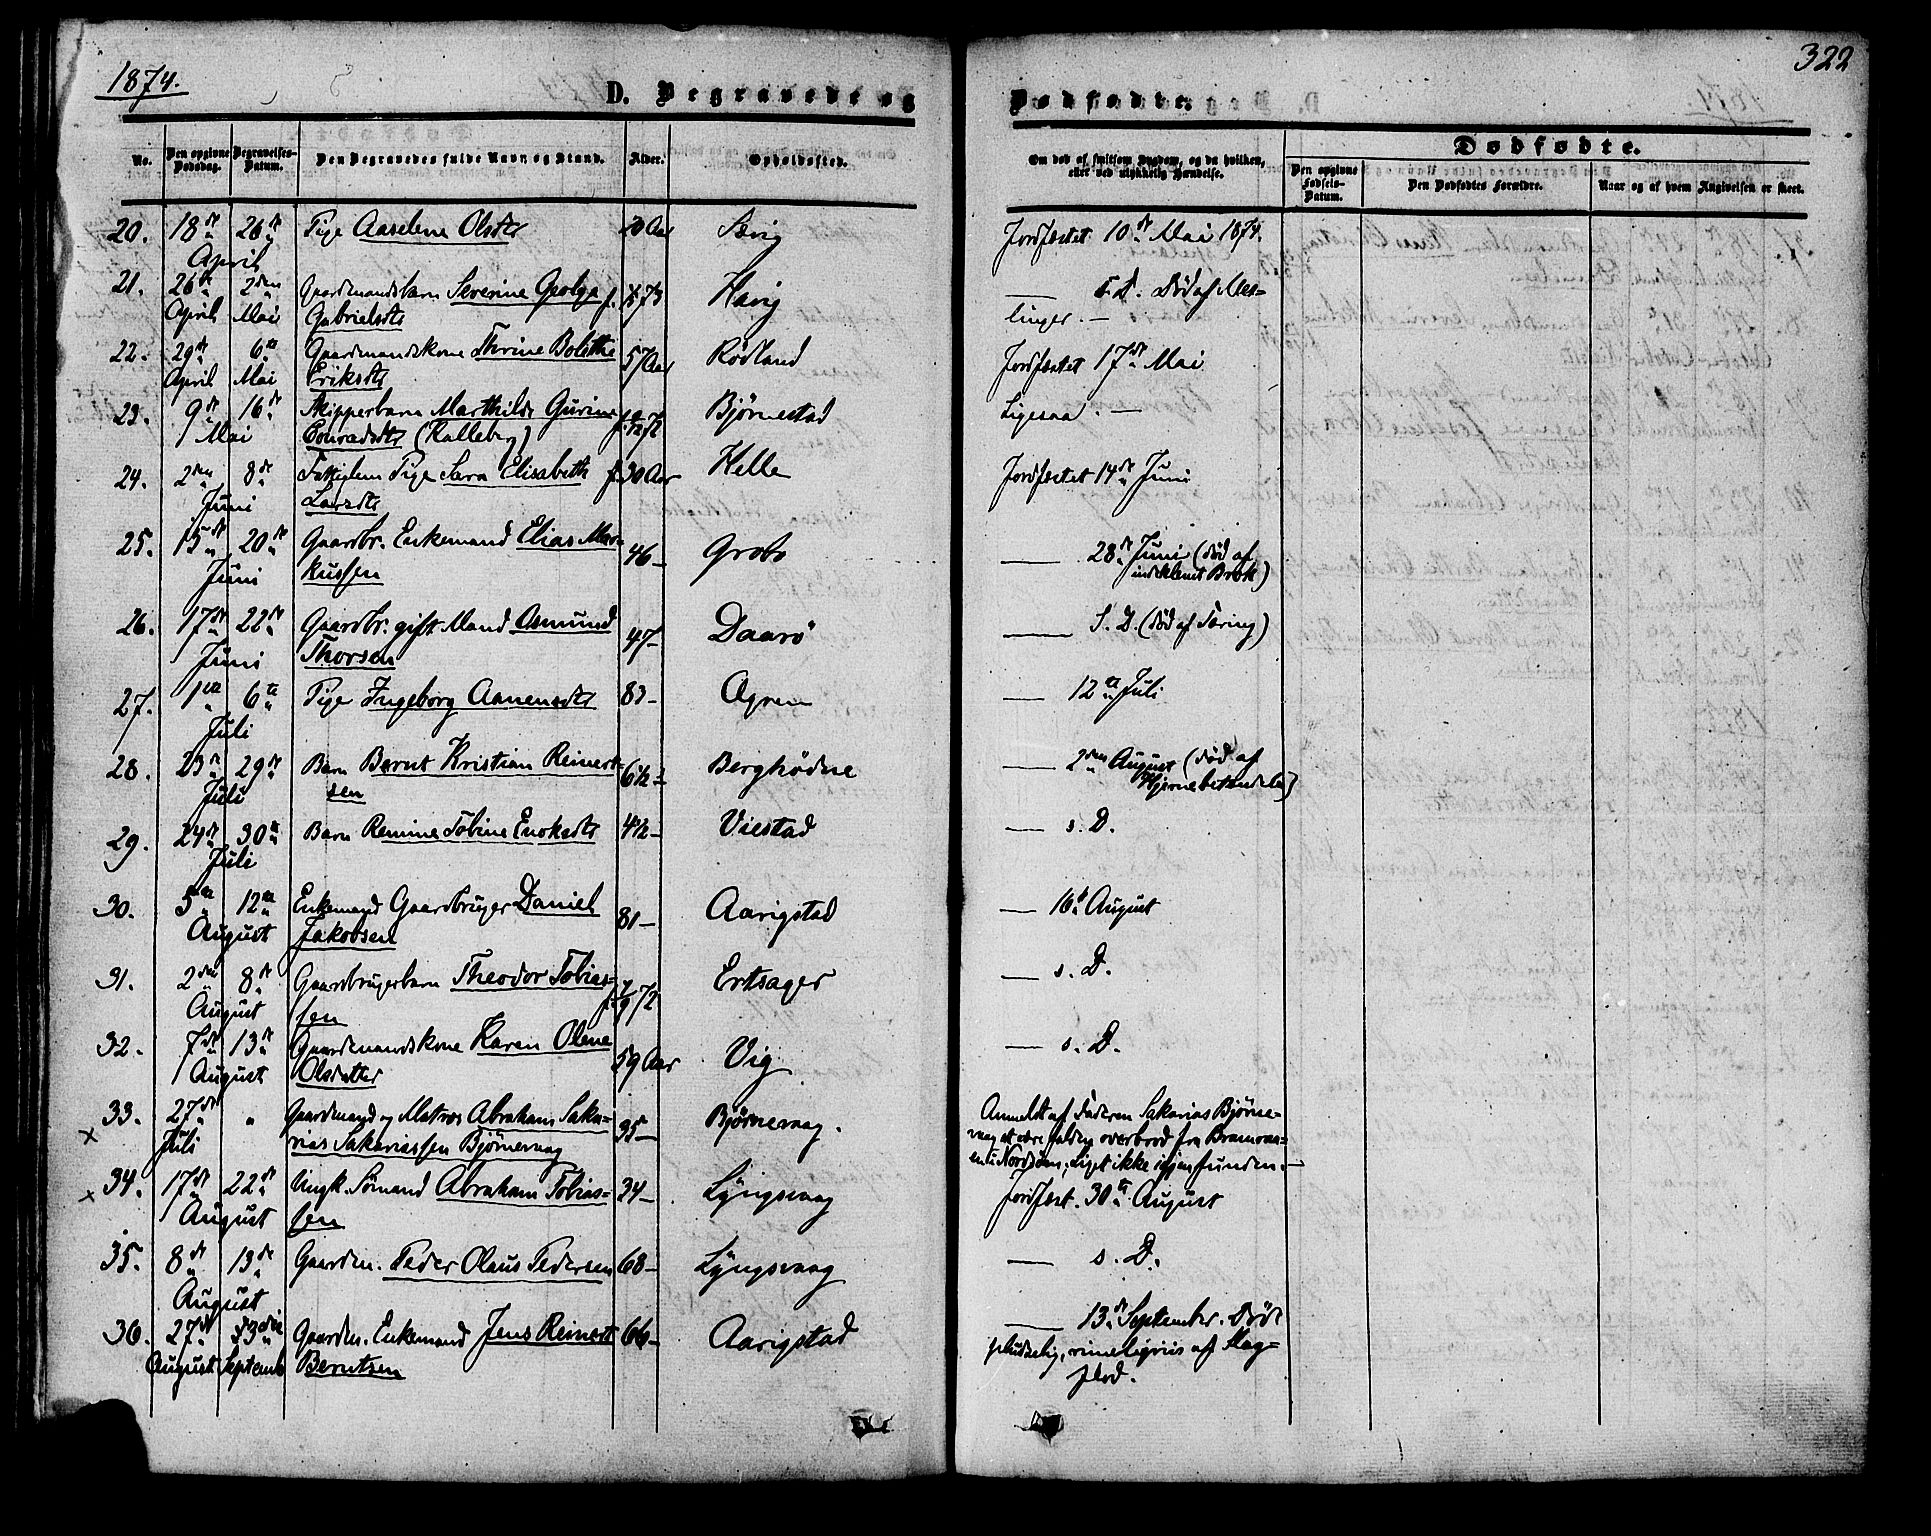 1874.
322
D. Begravede og
Dødfødte.
No.
Den opgivne Dødsdag.
Begravelses-Datum.
Den Begravedes fulde Navn og Stand.
Alder.
Opholdssted.
Om død af smitsom Sygdom, og da hvilken, eller ved ulykkelig Hændelse.
Dødfødte.
Den opgivne Fødsels-Datum.
Den Dødfødtes Forældre.
Naar og af hvem Angivelsen er skeet.
20. 18de 26de Pige Aaselene Olsdtr Aar Sævig Jordfæstet 10de Mai 1874.
April
21. 26de 2den Gaardmandsbarn Severine f. 73 Hævig — s. D. Død af Mes-
April Mai Gabrielsdtr linger. —
22. 29de 6te Gaardmandskone Thrine Bolethe 57 Aar Rødland Jordfæstet 17de Mai
April Mai Eriksdtr
23. 9de 16de Skipperbarn Marthilde Gurine f. 72 Bjørnestad Ligesaa. —
Mai Conradsdtr (Kalleberg)
24. 2den 8de Fattiglem Pige Sara Elisabeth f. 30 Aar Helle Jordfæstet 14de Juni
Juni Larsdtr
25. 15de 20de Gaardbr. Enkemand Elias Mar- 46 — Grobo — 28de Juni (død af
Juni kussen indeklemt Brok)
26. 17de 22de Gaardbr. gift Mand Asmund 47 — Daarø — S. D. (død af Tæring)
Juni Thorsen
27. 1ste 6te Pige Ingeborg Aanensdtr 83 — Agren — 12te Juli
Juli
28. 23de 29de Barn Bernt Kristian Reinert- 6½ — Berghødne — 2den August (død af
Juli sen Hjernebetændelse)
29. 24de 30te Barn Remine Tobine Enoksdtr 4½ — Viestad — s. D.
Juli
30. 5te 12te Enkemand Gaardbruger Daniel 81 — Aarigstad — 16de August
August Jakobsen
31. 2den 8de Gaardbrugerbarn Theodor Tobias- f. 72 Ertsager — s. D.
August sen
32. 7de 13de Gaardmandskone Karen Olene 59 Aar Vig — s. D.
August Olsdatter
33. 27de " Gaardmand og Matros Abraham Saka- 35 — Bjørnevaag. Anmeldt af Faderen Sakarias Bjørne-
× Juli rias Sakariassen Bjørnevaag vaag at være falden overbord fra
i Nordsøen; Liget ikke igjenfunden. —
34. 17de 22de Ungk. Sømand Abraham Tobias- 34 — Lyngsvaag Jordfæst. 30te August
× August sen
35. 8de 13de Gaardm. Peder Olaus Pedersen 68 — Lyngsvaag — s. D.
August
36. 27de 3die Gaardm. Enkemand Jens Reinert 66 — Aarigstad — 13de September. Død
August Septemb Berntsen pludselig, rimeligviis af Slag-
flod.